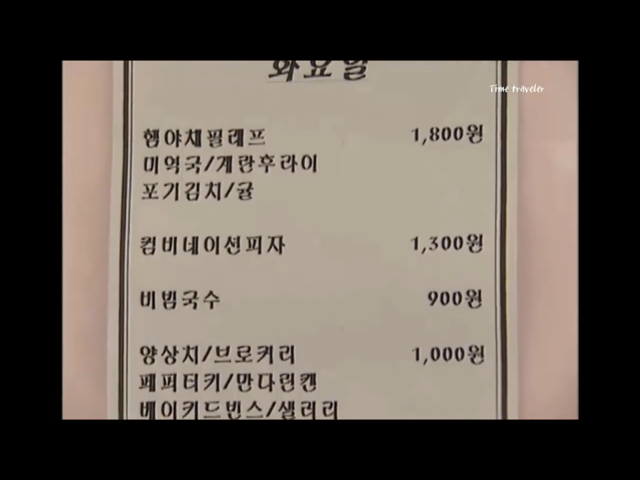 화요일
Time traveler
햄야채필래프 1,800원
미역국/계란후라이
포기김치/귤
컴비네이션피자 1,300원
비빔국수 900원
양상치/브로커리 1,000원
페퍼터키/만다린캔
베이키드빈스/샐러리